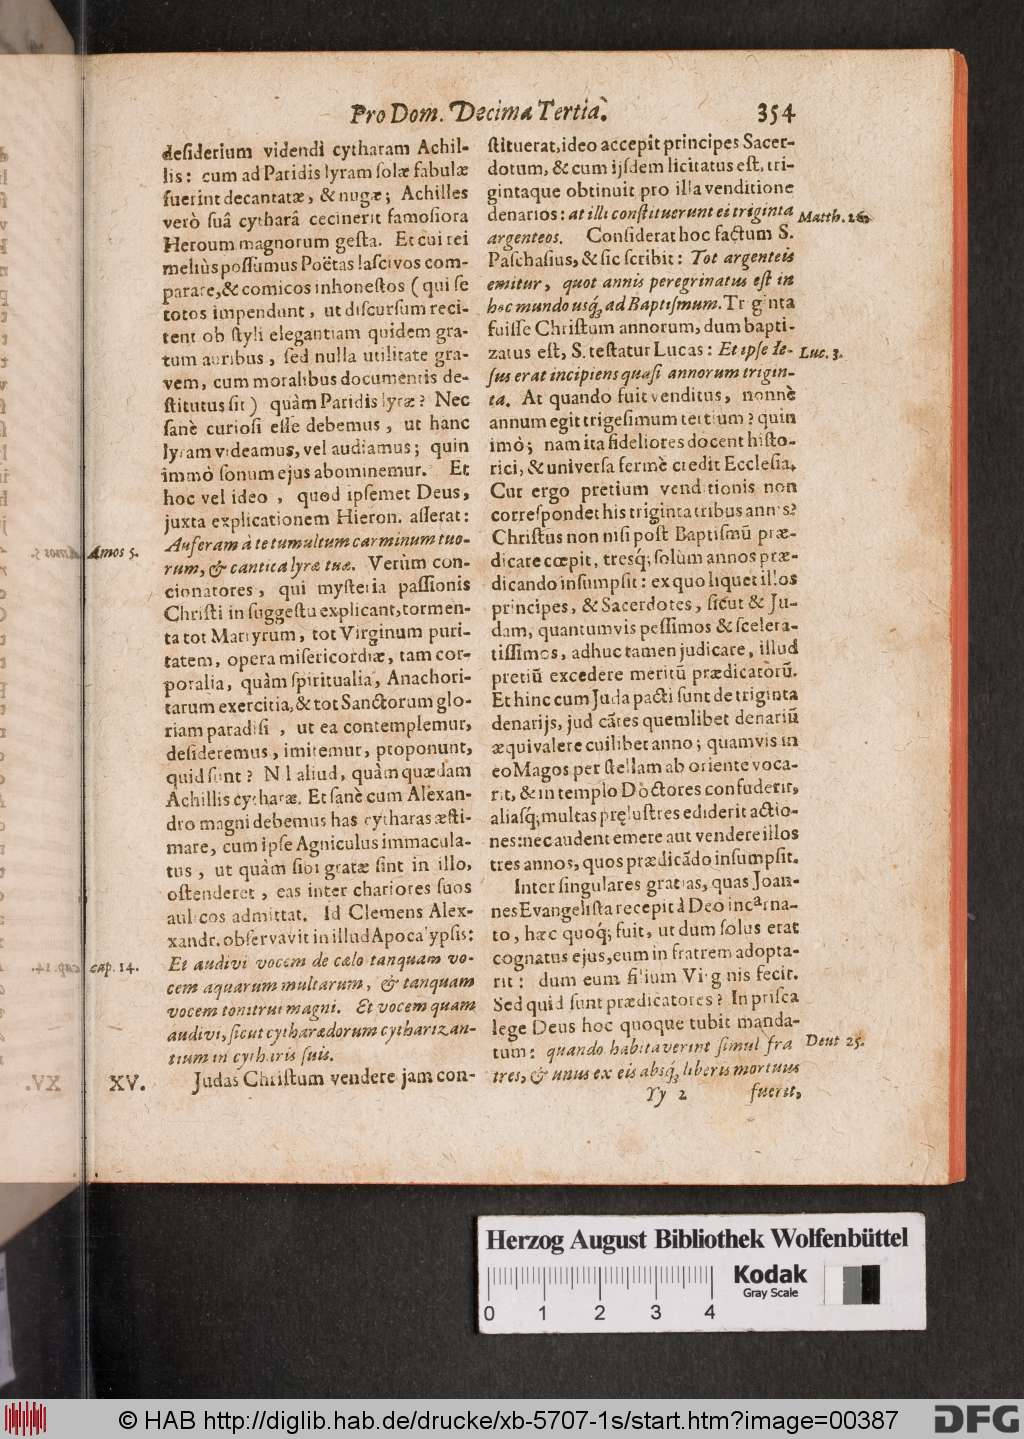 Pro Dom. Decima Tertia.
354
desiderium videndi cytharam Achil-
lis: cum ad Paridis lyram solæ fabulæ
fuerint decantatæ, & nugæ; Achilles
verò suâ cytharâ cecinerit famosiora
Heroum magnorum gesta. Et cui rei
meliùs possumus Poëtas lascivos com-
parare, & comicos inhonestos (qui se
totos impendunt, ut discursum reci-
tent ob styli elegantiam quidem gra-
tum auribus, sed nulla utilitate gra-
vem, cum moralibus documentis de-
stitutus sit) quàm Paridis lyræ? Nec
sanè curiosi esse debemus, ut hanc
lyram videamus, vel audiamus; quin
immó sonum ejus abominemur. Et
hoc vel ideo, quod ipsemet Deus,
juxta explicationem Hieron. asserat:
Auferam à te tumultum carminum tuo-
Amos 5.
rum, & cantica lyræ tuæ. Verùm con-
cionatores, qui mysteria passionis
Christi in suggestu explicant, tormen-
ta tot Martyrum, tot Virginum puri-
tatem, opera misericordiæ, tam cor-
poralia, quàm spiritualia, Anachori-
tarum exercitia, & tot Sanctorum glo-
riam paradisi, ut ea contemplemur,
desideremus, imitemur, proponunt,
quid sunt? N l aliud, quàm quædam
Achillis cytharæ. Et sanè cum Alexan-
dro magni debemus has cytharas æsti-
mare, cum ipse Agniculus immacula-
tus, ut quàm sibi gratæ sint in illo,
ostenderet, eas inter chariores suos
aulicos admittat. Id Clemens Alex-
xandr. observavit in illud Apocalypsis:
Et audivi vocem de cælo tanquam vo-
cap. 14.
cem aquarum multarum, & tanquam
vocem tonitrui magni. Et vocem quam
audivi, sicut cytharædorum cytharizan-
tium in cytharis suis.
XV.
Judas Christum vendere jam con-
stituerat, ideo accepit principes Sacer-
dotum, & cum ijsdem licitatus est, tri-
gintaque obtinuit pro illa venditione
denarios: at illi constituerunt ei triginta
Matth. 26
argenteos. Considerat hoc factum S.
Paschasius, & sic scribit: Tot argenteis
emitur, quot annis peregrinatus est in
hoc mundo usq́; ad Baptismum. Tr ginta
fuisse Christum annorum, dum bapti-
zatus est, S. testatur Lucas: Et ipse Ie-
Luc. 3.
sus erat incipiens quasi annorum trigin-
ta. At quando fuit venditus, nonnè
annum egit trigesimum tertium? quin
imò; nam ita fideliores docent histo-
rici, & universa fermè credit Ecclesia.
Cur ergo pretium venditionis non
correspondet his triginta tribus annis?
Christus non nisi post Baptismũ præ-
dicare cœpit, tresq́; solùm annos præ-
dicando insumpsit: ex quo liquet illos
principes, & Sacerdotes, sicut & Ju-
dam, quantumvis pessimos & scelera-
tissimos, adhuc tamen judicare, illud
pretiũ excedere meritũ prædicatorũ.
Et hinc cum Juda pacti sunt de triginta
denarijs, jud cãtes quemlibet denariũ
æquivalere cuilibet anno; quamvis in
eo Magos per stellam ab oriente voca-
rit, & in templo Doctores confuderit,
aliasq́; multas pręlustres ediderit actio-
nes: nec audent emere aut vendere illos
tres annos, quos prædicãdo insumpsit.
Inter singulares gratias, quas Joan-
nes Evangelista recepit à Deo incarna-
to, hæc quoq́; fuit, ut dum solus erat
cognatus ejus, eum in fratrem adopta-
rit: dum eum filium Virginis fecit.
Sed quid sunt prædicatores? In prisca
lege Deus hoc quoque tubit manda-
tum: quando habitaverint simul fra
Deut 25.
tres, & unus ex eis absq́; liberis mortuus
Yy 2
fuerit,
Herzog August Bibliothek Wolfenbüttel
Kodak
Gray Scale
0 1 2 3 4
© HAB http://diglib.hab.de/drucke/xb-5707-1s/start.htm?image=00387
DFG